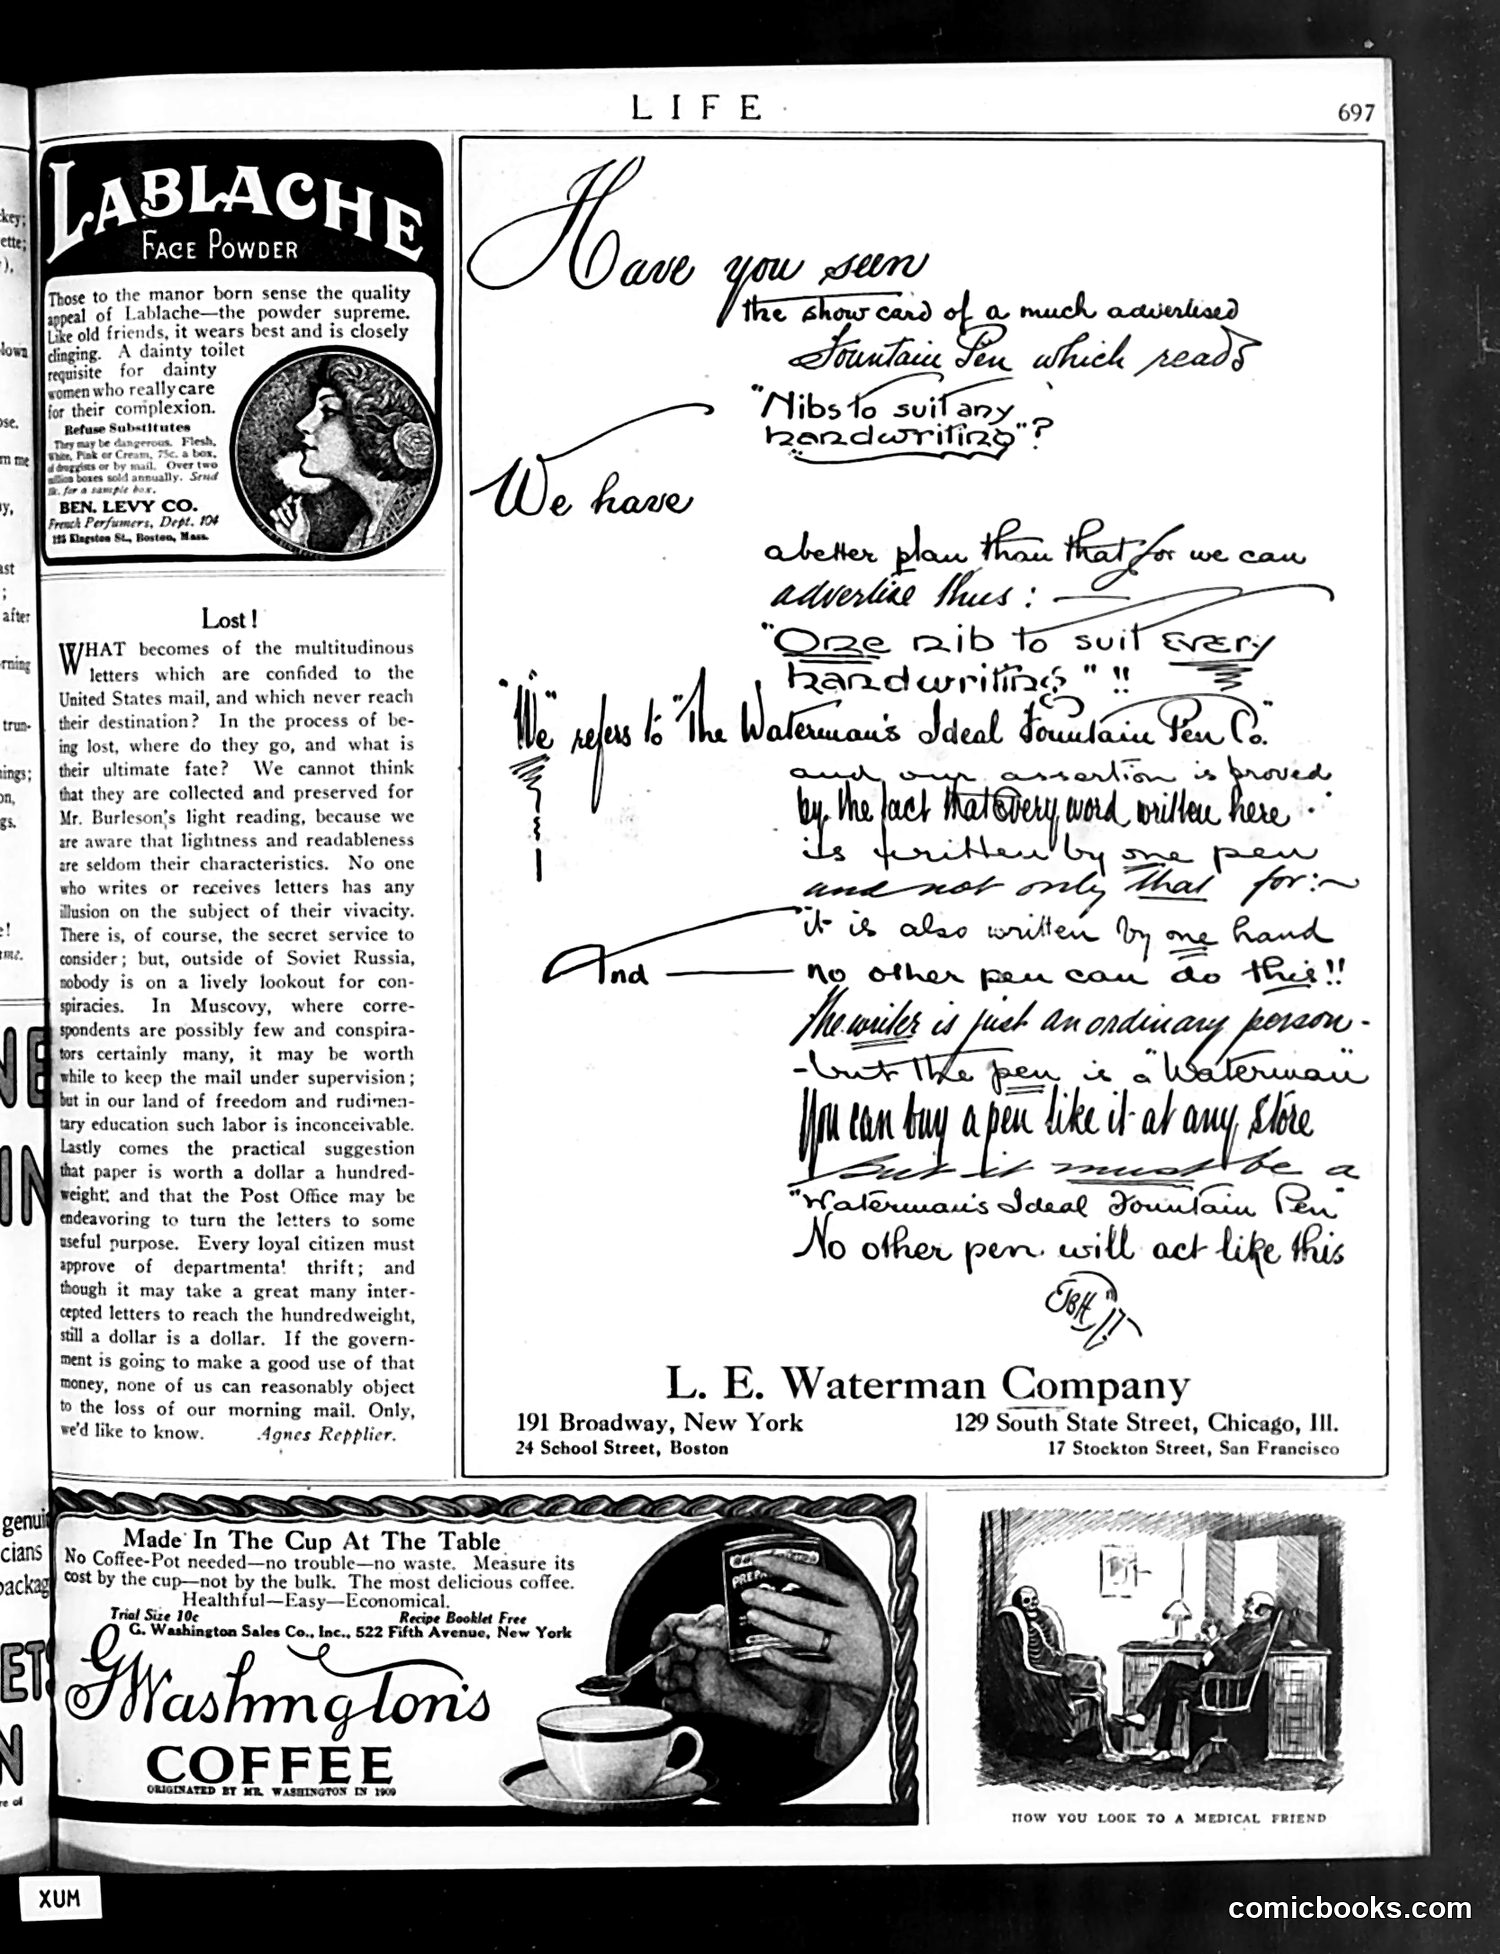 LIFE
697
LABLACHE
FACE POWDER
Those to the manor born sense the quality
appeal of Lablache—the powder supreme.
Like old friends, it wears best and is closely
clinging. A dainty toilet
requisite for dainty
women who really care
for their complexion.
Refuse Substitutes
They may be dangerous. Flesh,
White, Pink or Cream, 75c. a box,
of druggists or by mail. Over two
million boxes sold annually. Send
10c. for a sample box.
BEN. LEVY CO.
French Perfumers, Dept. 104
125 Kingston St., Boston, Mass.
Lost!
WHAT becomes of the multitudinous
letters which are confided to the
United States mail, and which never reach
their destination? In the process of be-
ing lost, where do they go, and what is
their ultimate fate? We cannot think
that they are collected and preserved for
Mr. Burleson's light reading, because we
are aware that lightness and readableness
are seldom their characteristics. No one
who writes or receives letters has any
illusion on the subject of their vivacity.
There is, of course, the secret service to
consider; but, outside of Soviet Russia,
nobody is on a lively lookout for con-
spiracies. In Muscovy, where corre-
spondents are possibly few and conspira-
tors certainly many, it may be worth
while to keep the mail under supervision;
but in our land of freedom and rudimen-
tary education such labor is inconceivable.
Lastly comes the practical suggestion
that paper is worth a dollar a hundred-
weight; and that the Post Office may be
endeavoring to turn the letters to some
useful purpose. Every loyal citizen must
approve of departmental thrift; and
though it may take a great many inter-
cepted letters to reach the hundredweight,
still a dollar is a dollar. If the govern-
ment is going to make a good use of that
money, none of us can reasonably object
to the loss of our morning mail. Only,
we'd like to know. Agnes Repplier.
Have you seen
the show card of a much advertised
Fountain Pen which reads
"Nibs to suit any
handwriting"?
We have
a better plan than that for we can
advertise thus:
"One nib to suit every
handwriting"!!
"We" refers to "The Waterman's Ideal Fountain Pen Co."
and our assertion is proved
by the fact that every word written here
is written by one pen
and not only that for:~
it is also written by one hand
And — no other pen can do this!!
The writer is just an ordinary person-
-but the pen is a "Waterman"
You can buy a pen like it at any store
But it must be a
"Waterman's Ideal Fountain Pen"
No other pen will act like this
L. E. Waterman Company
191 Broadway, New York 129 South State Street, Chicago, Ill.
24 School Street, Boston 17 Stockton Street, San Francisco
Made In The Cup At The Table
No Coffee-Pot needed—no trouble—no waste. Measure its
cost by the cup—not by the bulk. The most delicious coffee.
Healthful—Easy—Economical.
Trial Size 10c Recipe Booklet Free
G. Washington Sales Co., Inc., 522 Fifth Avenue, New York
G Washington's
COFFEE
ORIGINATED BY MR. WASHINGTON IN 1909
HOW YOU LOOK TO A MEDICAL FRIEND
XUM
comicbooks.com